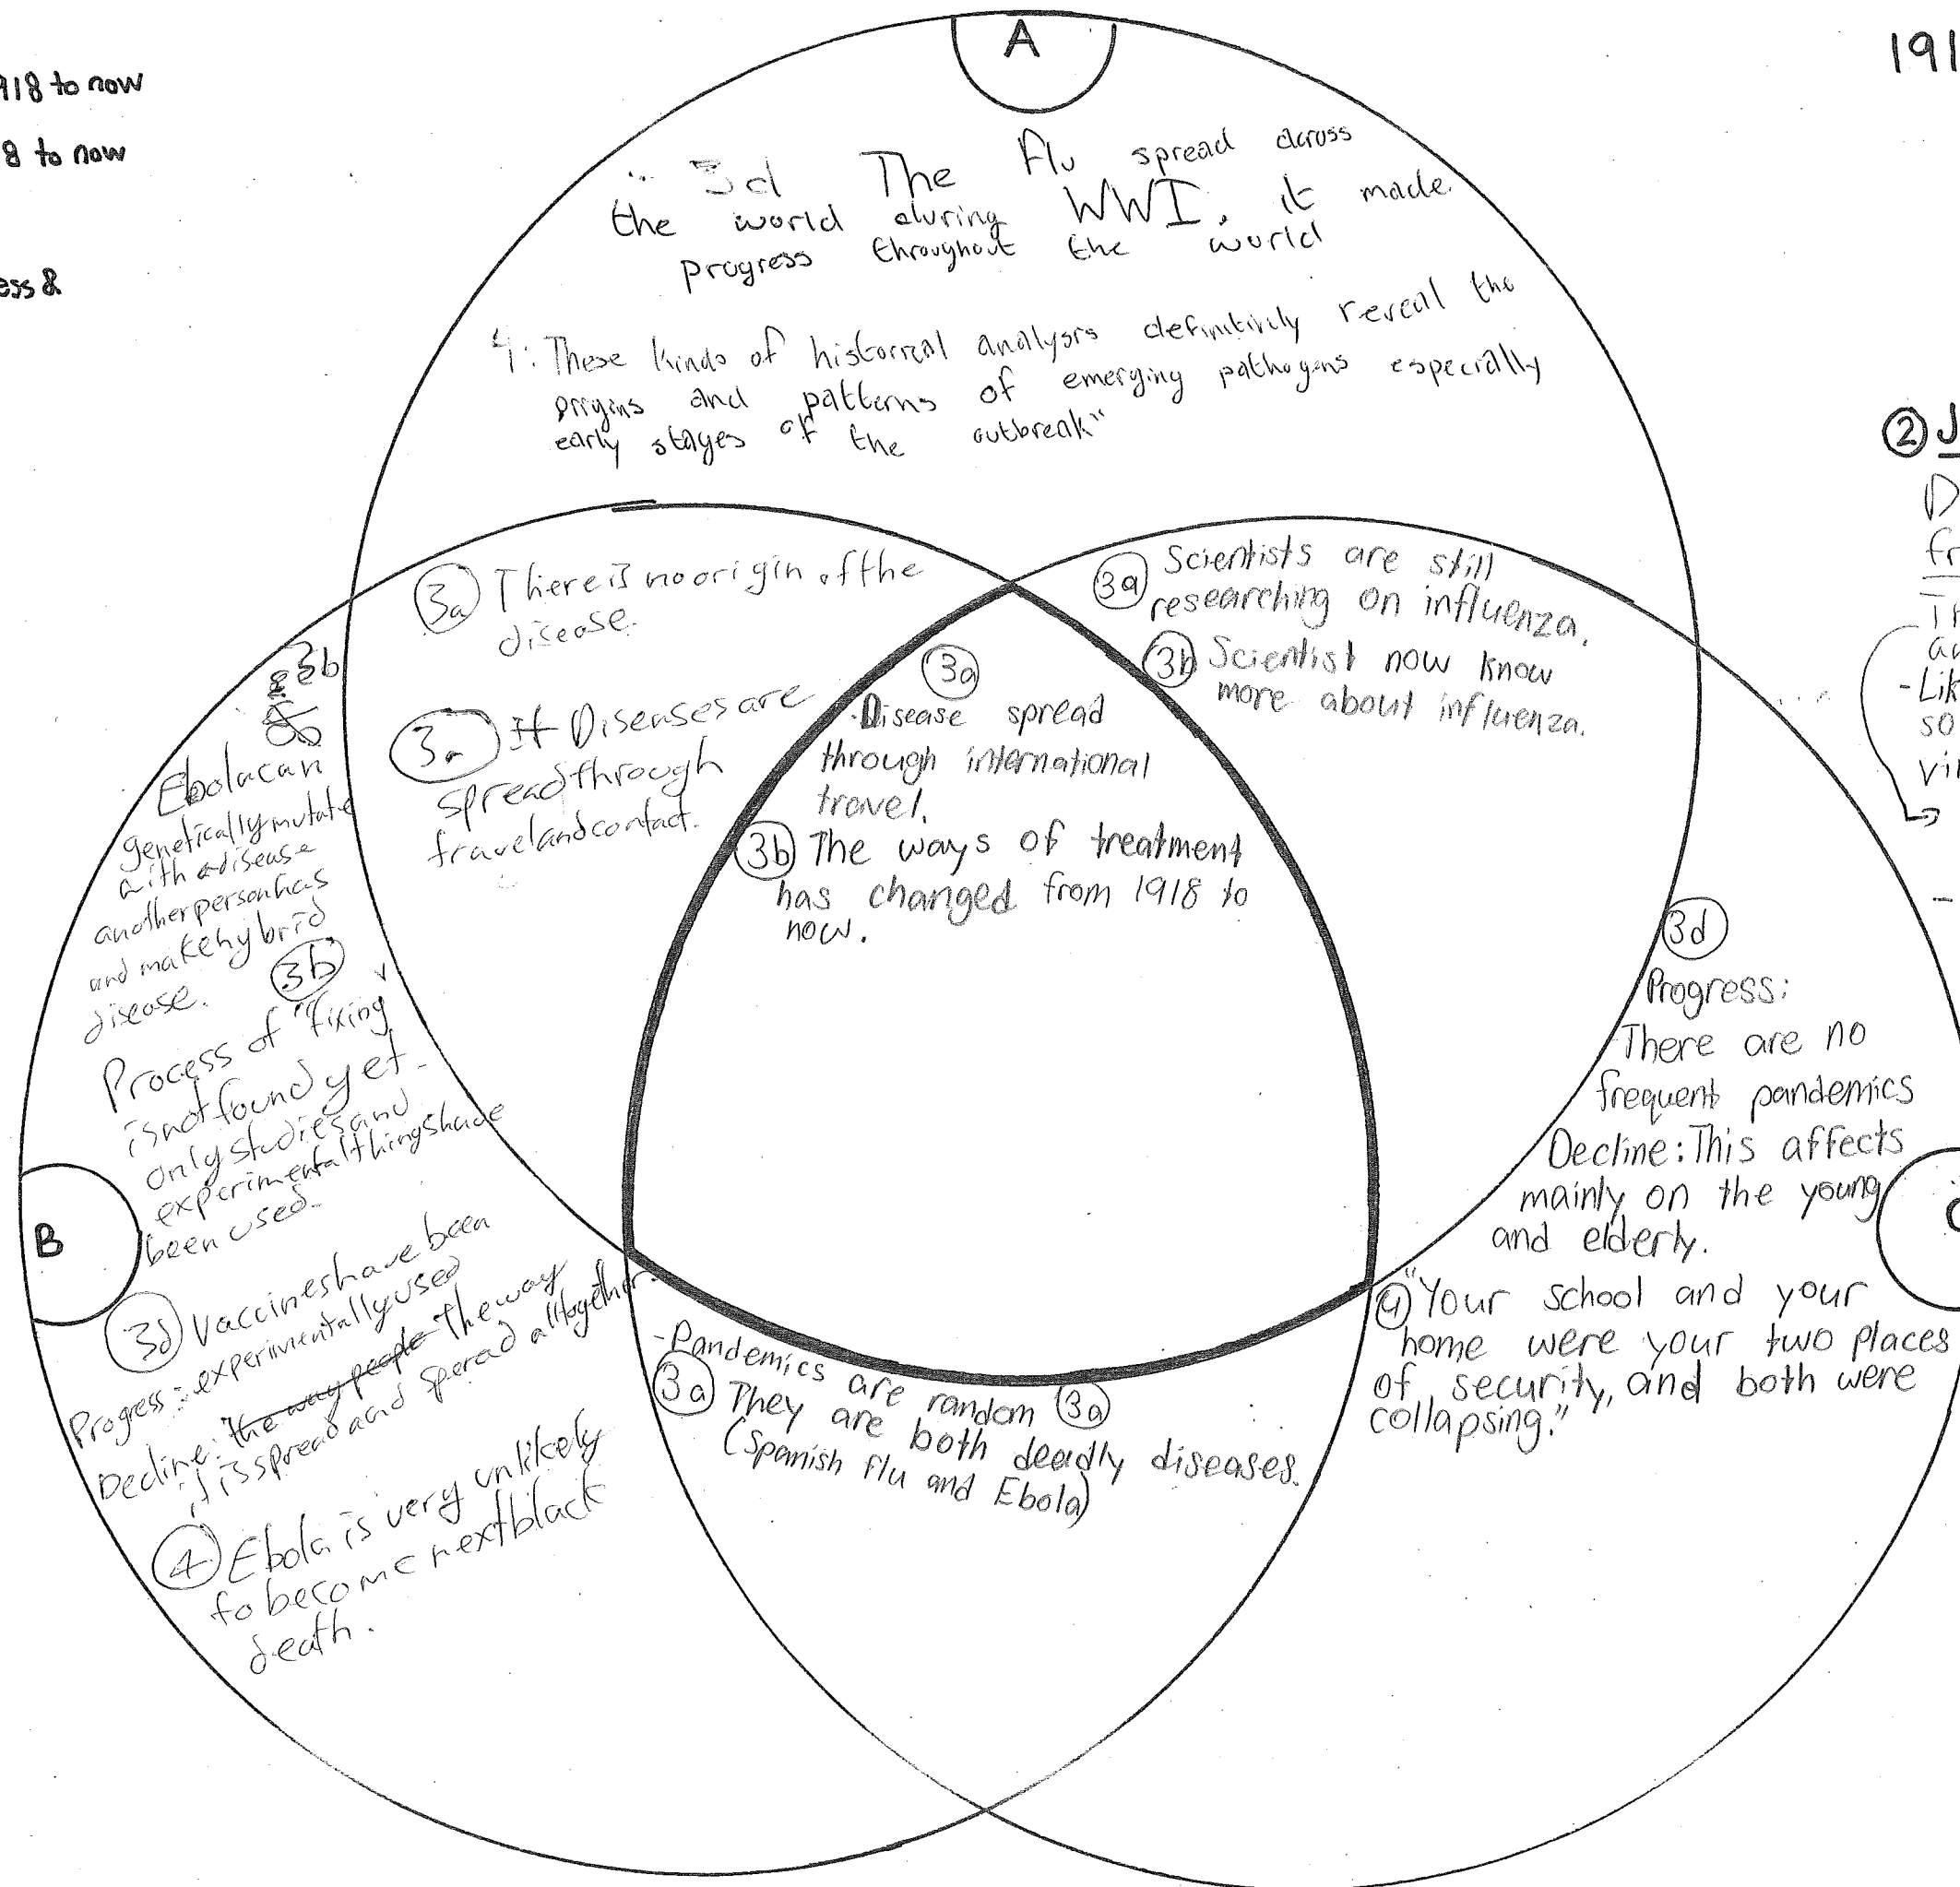 918 to now
8 to now
ess &
A
191
3d The Flu spread across
the world during WWI. it made
progress throughout the world
4: These kinds of historical analysis definitivly reveal the
origins and patterns of emerging pathogens especially
early stages of the outbreak"
② J
D
fr
Th
au
-Lik
so
vi
-
3a There is no origin of the
disease.
3a It Diseases are
spread through
travel and contact.
3a Scientists are still
researching on influenza.
3b Scientist now know
more about influenza.
3a
Disease spread
through international
travel.
3b The ways of treatment
has changed from 1918 to
now.
3b
Ebola can
genetically mutate
with a disease
another person has
and make hybrid
disease.
3b
Process of "fixing
is not found yet-
only studies and
experimental things have
been used.
B
3d Vaccines have been
Progress: experimentally used
Decline: the way people The way
it is spread and spread alltogether.
4 Ebola is very unlikely
to become next black
death.
-Pandemics are random 3a
3a They are both deadly diseases.
(Spanish flu and Ebola)
3d
Progress:
There are no
frequent pandemics
Decline: This affects
mainly on the young
and elderly.
C
4 "Your school and your
home were your two places
of security, and both were
collapsing."